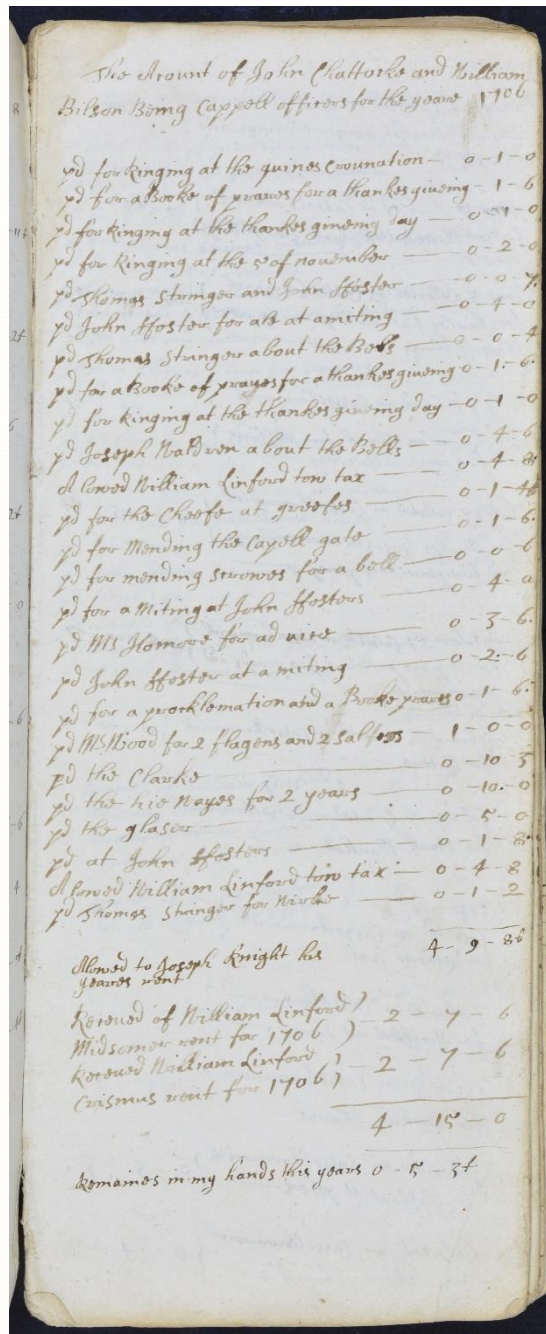 The Acount of John Chattocke and William
Bilson Being Cappell officers for the yeare 1706
pd for Ringing at the quines Crounation — 0-1-0
pd for a Booke of prares for a thankes giveing - 1-6
pd for Ringing at the thankes giveing day — 0-1-0
pd for Ringing at the 5 of november — 0-2-0
pd Thomas Stringer and John ffoster — 0-0-7
pd John ffoster for ale at a miting — 0-4-0
pd Thomas Stringer about the Bells — 0-0-4
pd for a Booke of prayes for a thankes giveing 0-1-6
pd for Ringing at the thankes giveing day — 0-1-0
pd Joseph Waldren about the Bells — 0-4-6
Alowed William Linford tow tax — 0-4-8
pd for the Cheefe at greefes — 0-1-4
pd for Mending the Capell gate — 0-1-6
pd for mending scrowes for a bell — 0-0-6
pd for a Miting at John ffosters — 0-4-0
pd Mr for ad vice — 0-3-6
pd John ffoster at a miting — 0-2-6
pd for a procklemation and a Booke prares 0-1-6
pd Mr Wood for 2 flagens and 2 — 1-0-0
pd the Clarke — 0-10-5
pd the hie Wayes for 2 years — 0-10-0
pd the glaser — 0-5-0
pd at John ffosters — 0-1-8
Alowed William Linford tow tax — 0-4-8
pd Thomas Stringer for Worke — 0-1-2
4-9-8
Allowed to Joseph Knight his
yeares rent
Receved of William Linford )
Midsomer rent for 1706 ) - 2-7-6
Receved William Linford )
Crismus rent for 1706 ) - 2-7-6
4-15-0
Remaines in my hands this years 0-5-3